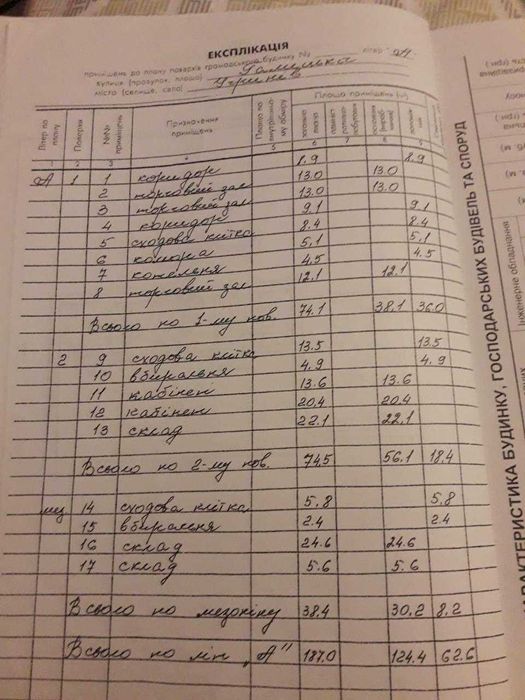 ЕКСПЛІКАЦІЯ
приміщень до плану поверхів громадського будинку № літер "А"
вулиця (провулок, площа) Галицька
місто (селище, село) Угринів
Площа приміщень (м²)
Літер по плану Поверхи №№ приміщень Призначення приміщень Площа по внутрішньому обміру
1 2 3 4 5 6 7 8
А 1 1 коридор 8.9 8.9
2 торговий зал 13.0 13.0
3 торговий зал 13.0 13.0
4 коридор 9.1 9.1
5 сходова клітка 8.4 8.4
6 комора 5.1 5.1
7 котельня 4.5 4.5
8 торговий зал 12.1 12.1
Всього по 1-му пов. 74.1 38.1 36.0
2 9 сходова клітка 13.5 13.5
10 вбиральня 4.9 4.9
11 кабінет 13.6 13.6
12 кабінет 20.4 20.4
13 склад 22.1 22.1
Всього по 2-му пов. 74.5 56.1 18.4
мез 14 сходова клітка 5.8 5.8
15 вбиральня 2.4 2.4
16 склад 24.6 24.6
17 склад 5.6 5.6
Всього по мезоніну 38.4 30.2 8.2
Всього по літ „А" 187.0 124.4 62.6
ХАРАКТЕРИСТИКА БУДИНКУ, ГОСПОДАРСЬКИХ БУДІВЕЛЬ ТА СПОРУД
Інженерне обладнання